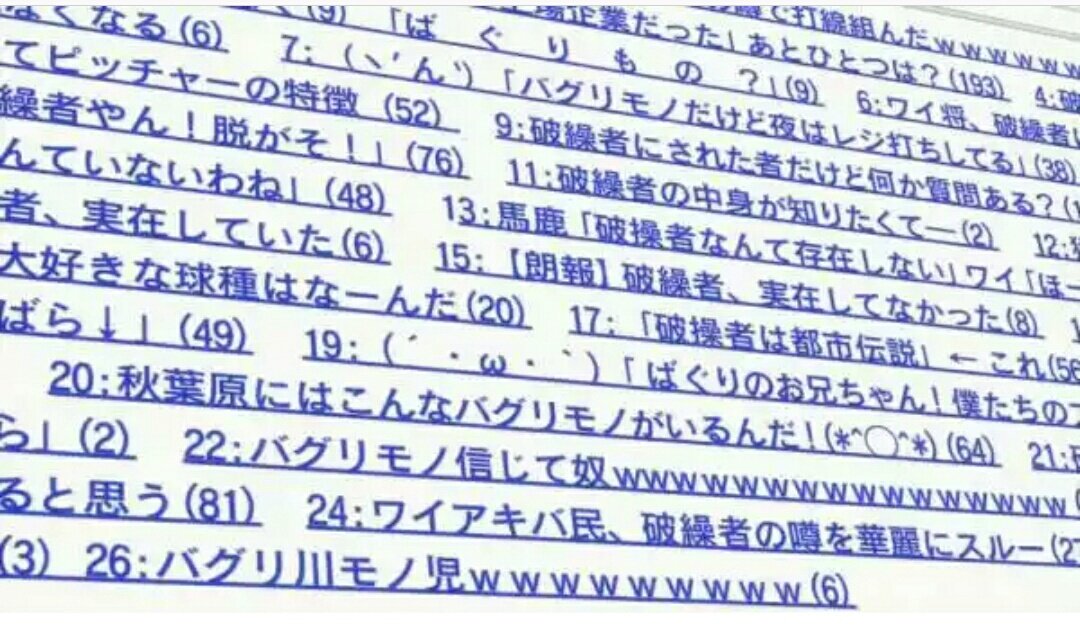 なくなる(6) 7:（ヽ´ん`）「ば ぐ り も の ？」(9) 6:ワイ将、破繰者
企業だった」あとひとつは？(193) 4:破
で打線組んだｗｗｗｗｗ
てピッチャーの特徴 (52) 「バグリモノだけど夜はレジ打ちしてる」(38)
繰者やん！脱がそ！」(76) 9:破繰者にされた者だけど何か質問ある？(1
んていないわね」(48) 11:破繰者の中身が知りたくて―(2) 12:
者、実在していた(6) 13:馬鹿「破操者なんて存在しない」ワイ「ほー
大好きな球種はなーんだ(20) 15:【朗報】破繰者、実在してなかった(8)
ばら↓」(49) 17:「破操者は都市伝説」←これ(56
19:（´・ω・｀）「ばぐりのお兄ちゃん！僕たちの
20:秋葉原にはこんなバグリモノがいるんだ！(*^◯^*)(64) 21:
ら」(2) 22:バグリモノ信じて奴wwwwwwwwwwwwwwww
ると思う(81) 24:ワイアキバ民、破繰者の噂を華麗にスルー(27
(3) 26:バグリ川モノ児ｗｗｗｗｗｗｗｗｗ(6)